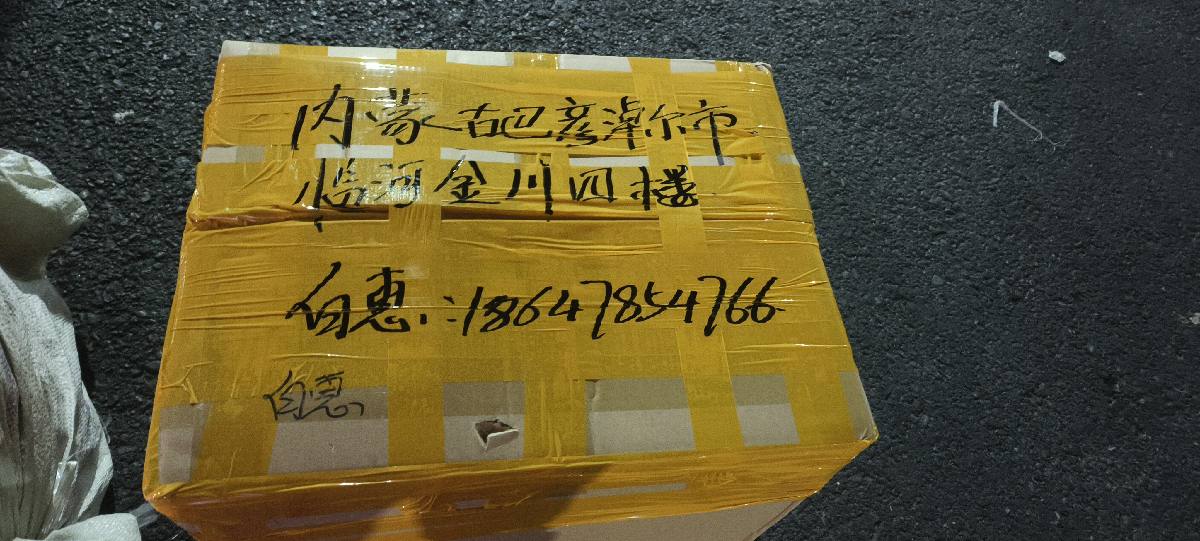 内蒙古巴彦淖尔市
临河金川四楼
白惠:18647854766
白惠